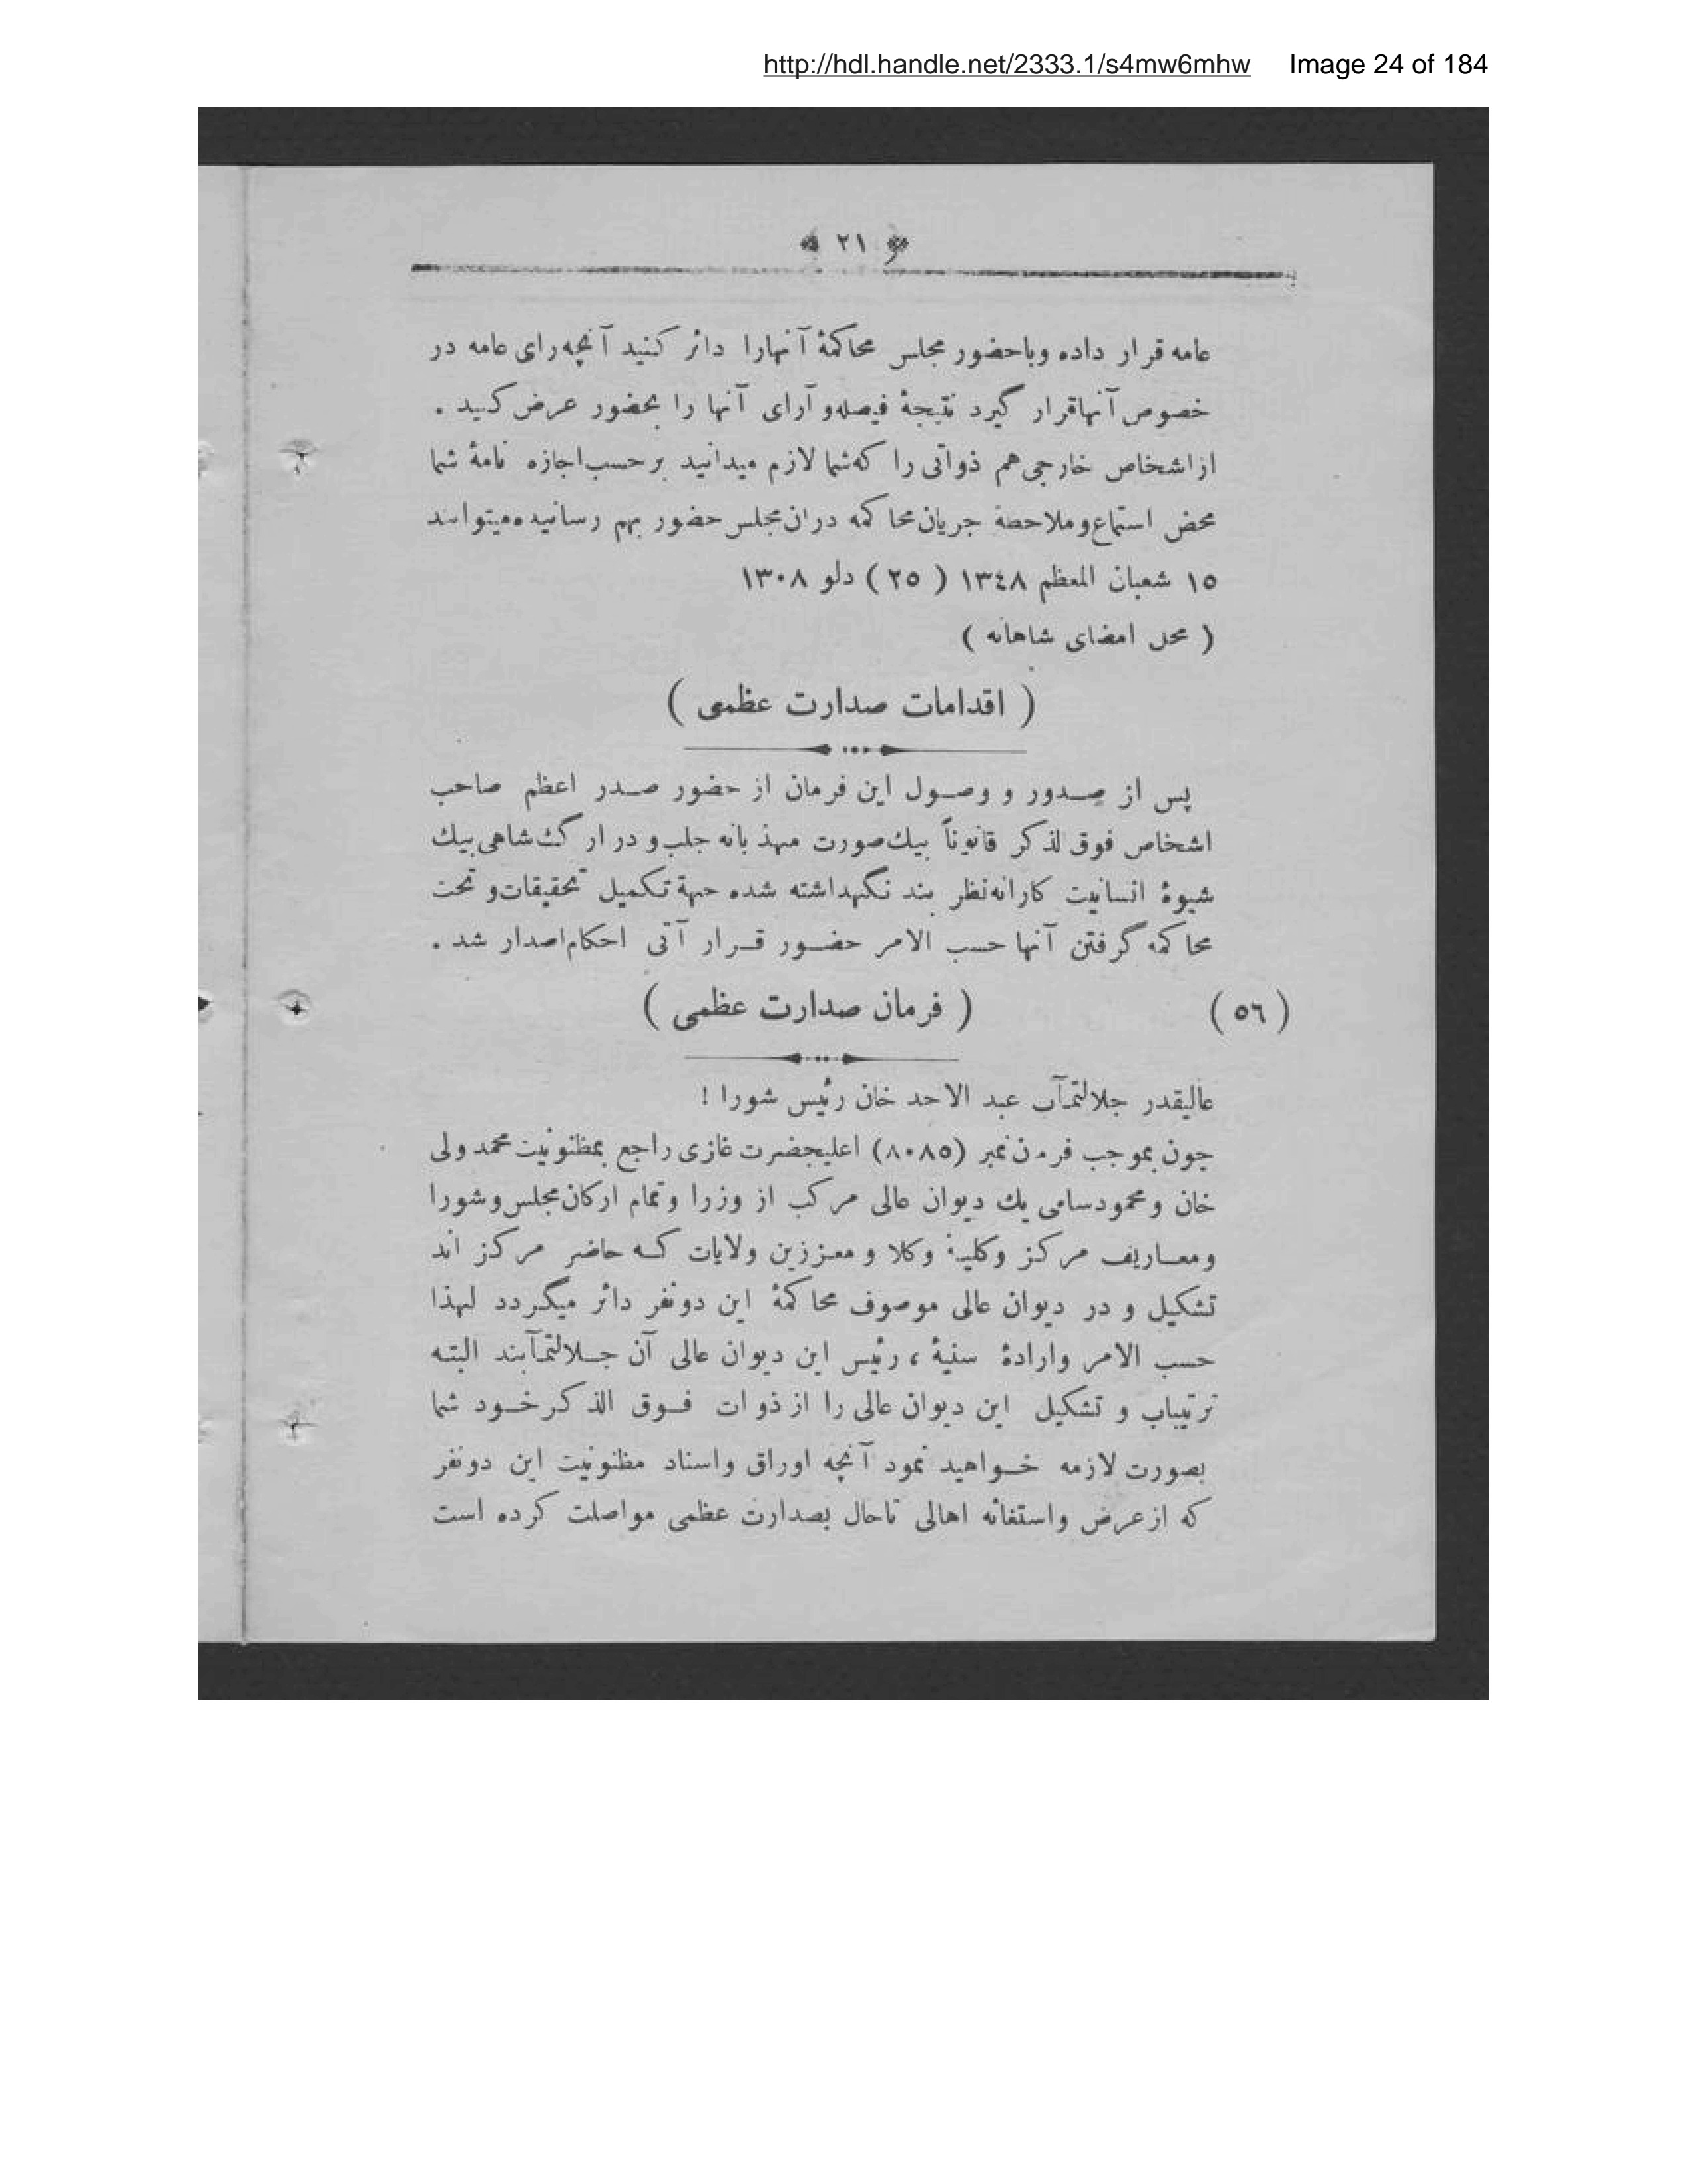 http://hdl.handle.net/2333.1/s4mw6mhw Image 24 of 184
﴿ ٢١ ﴾
عامه قرار داده وباحضور مجلس محاکمهٔ آنهارا دائر کنید آنچه رای عامه در
خصوص آنهاقرار گیرد نتیجهٔ فیصله و آرای آنها را بحضور عرض کنید .
از اشخاص خارجی هم ذواتی را که شما لازم میدانید بر حسب اجازه نامهٔ شما
محض استماع و ملاحظهٔ جریان محاکمه دران مجلس حضور بهم رسانیده میتوانند
١٥ شعبان المعظم ١٣٤٨ ( ٢٥ ) دلو ١٣٠٨
( محل امضای شاهانه )
( اقدامات صدارت عظمی )
پس از صدور و وصول این فرمان از حضور صدر اعظم صاحب
اشخاص فوق لذکر قانوناً بیك صورت مهذبانه جلب و در ارگ شاهی بیك
شیوهٔ انسانیت کارانه نظر بند نگهداشته شده جهة تکمیل تحقیقات و تحت
محاکمه گرفتن آنها حسب الامر حضور قرار آتی احکام اصدار شد .
( ٥٦ ) ( فرمان صدارت عظمی )
عالیقدر جلالتمآب عبد الاحد خان رئیس شورا !
چون بموجب فرمان نمبر (٨٠٨٥) اعلیحضرت غازی راجع بمظنونیت محمد ولی
خان و محمود سامی یك دیوان عالی مرکب از وزرا و تمام ارکان مجلس و شورا
و معاریف مرکز و کلیهٔ وکلا و معززین ولایات که حاضر مرکز اند
تشکیل و در دیوان عالی موصوف محاکمهٔ این دونفر دائر میگردد لهذا
حسب الامر وارادهٔ سنیهٔ ، رئیس این دیوان عالی آن جلالتمآبند البته
ترتیبات و تشکیل این دیوان عالی را از ذوات فوق الذکر خود شما
بصورت لازمه خواهید نمود آنچه اوراق واسناد مظنونیت این دونفر
که از عرض واستغاثه اهالی تاحال بصدارت عظمی مواصلت کرده است